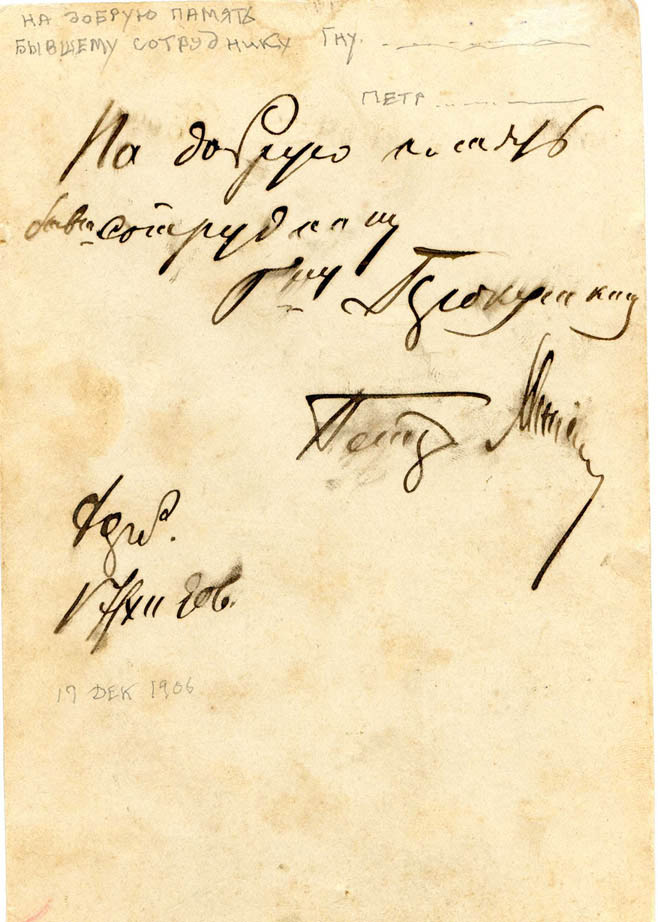 НА ДОБРУЮ ПАМЯТЬ
БЫВШЕМУ СОТРУДНИКУ Гну.
ПЕТР
На добрую память
бывш. сотруднику
Г-ну
Петр
17/XII 906.
17 ДЕК 1906